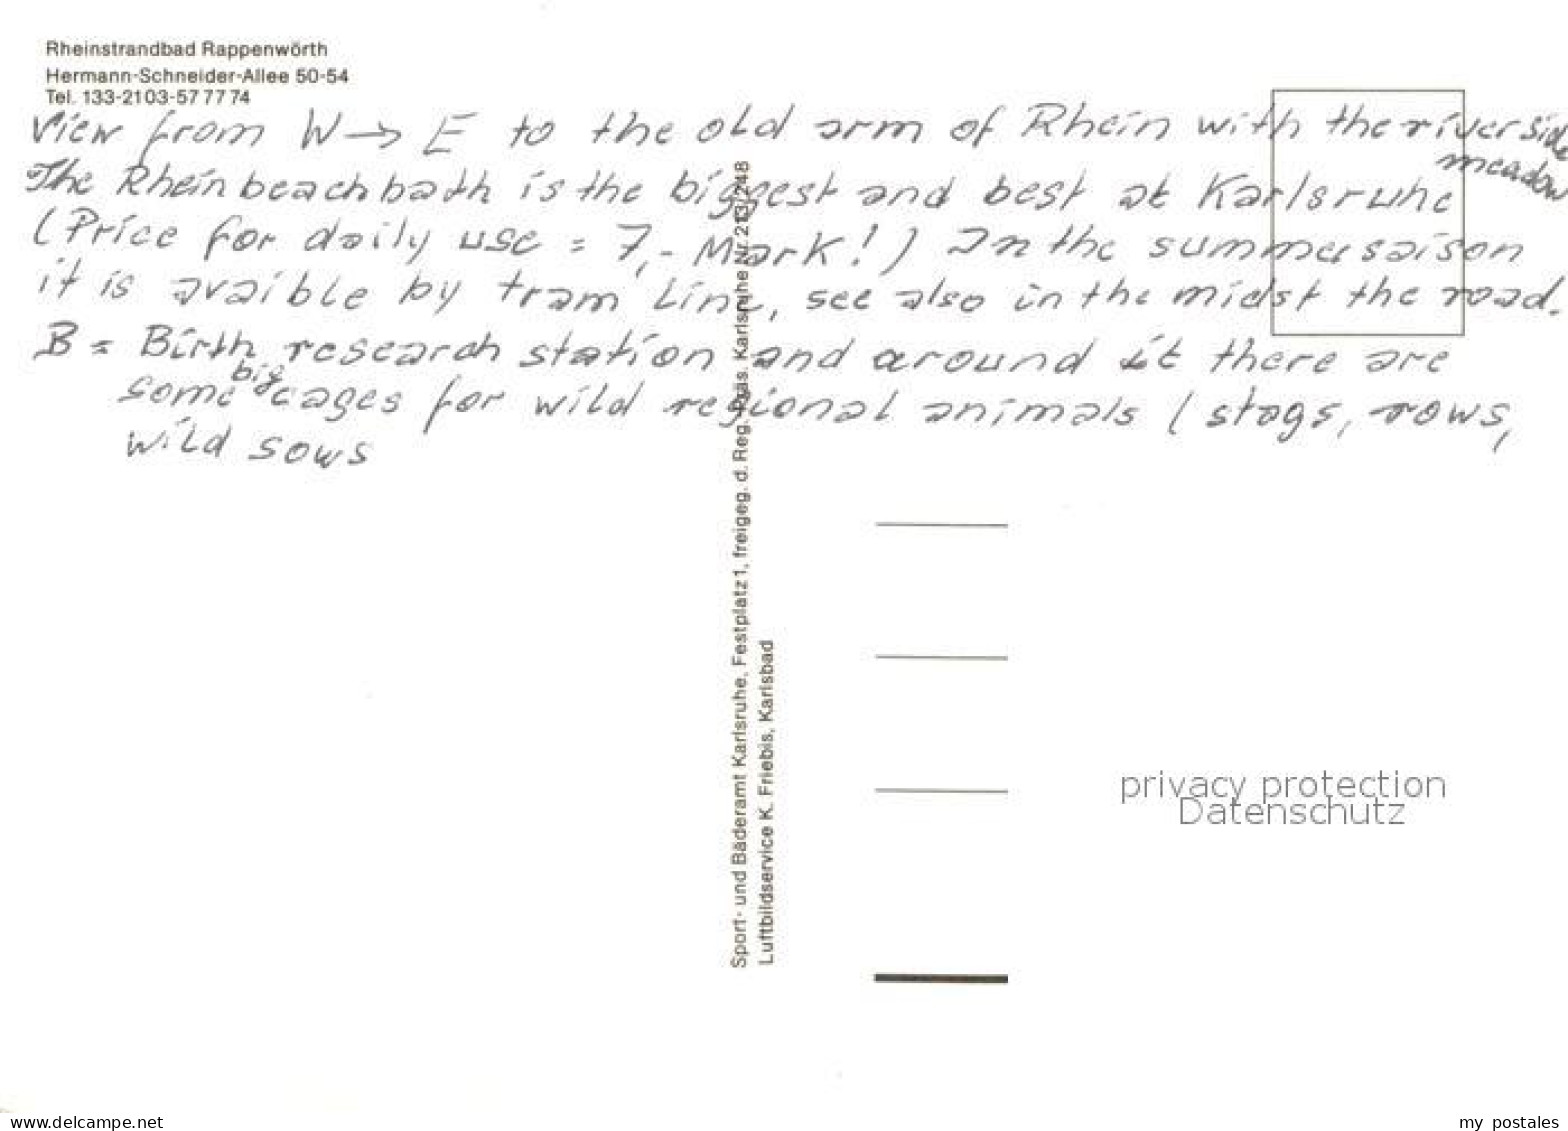 Rheinstrandbad Rappenwörth
Hermann-Schneider-Allee 50-54
Tel. 133-2103-57 77 74
View from W → E to the old arm of Rhein with the riverside
meadow
The Rheinbeachbath is the biggest and best at Karlsruhe
(Price for daily use = 7,- Mark!) In the summersaison
it is avaible by tram line, see also in the midst the road.
B = Birth research station and around it there are
some big cages for wild regional animals (stags, rows,
wild sows
Sport- und Bäderamt Karlsruhe, Festplatz 1, freigeg. d. Reg. Präs. Karlsruhe Nr. 213/248
Luftbildservice K. Friebis, Karlsbad
privacy protection
Datenschutz
www.delcampe.net
my_postales